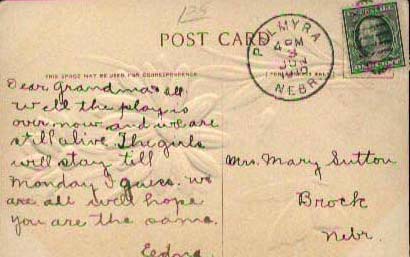 125
POST CARD
PALMYRA
4 PM
JUN
NEBR.
THIS SPACE MAY BE USED FOR CORRESPONDENCE
Dear Grandma & all
Well the play is
over now and we are
still alive. The girls
will stay till
Monday I guess. We
are all well hope
you are the same.
Eedna.
Mrs. Mary Sutton
Brock
Nebr.